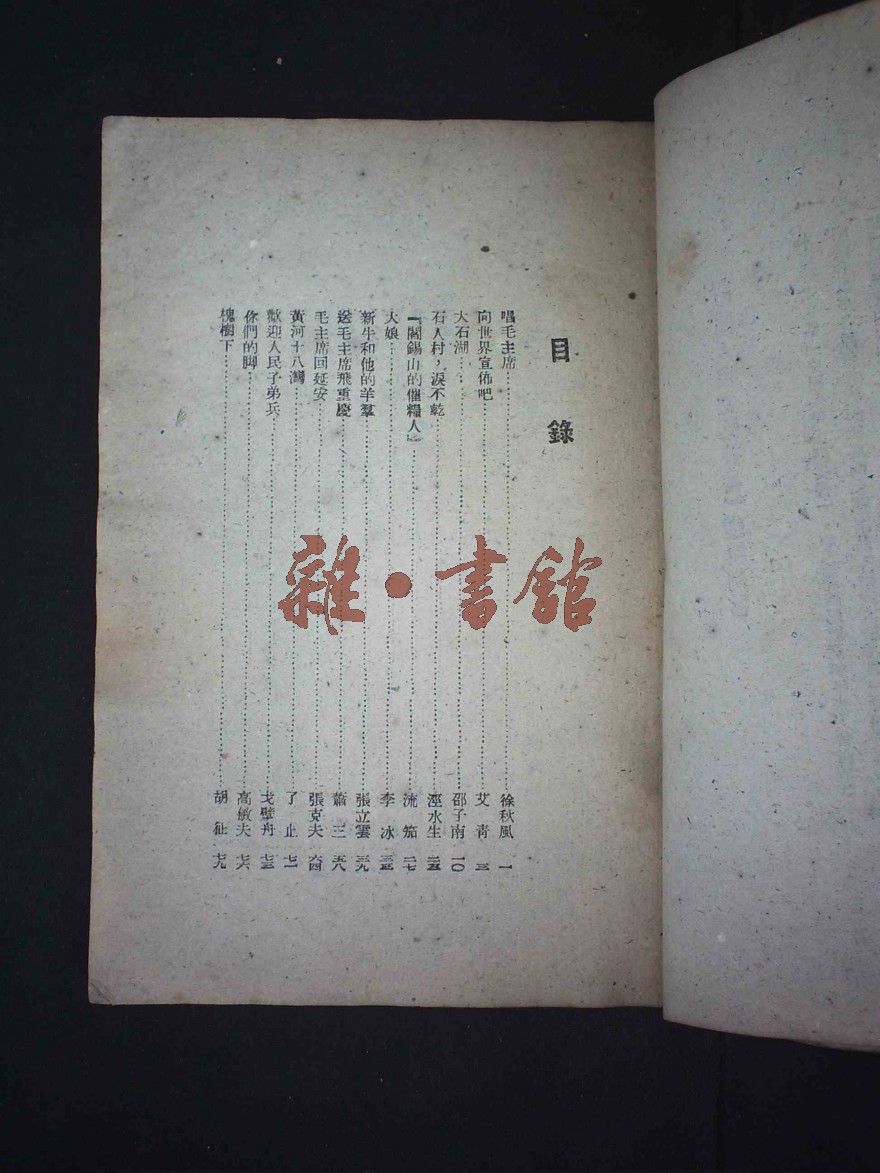 目錄
唱毛主席……徐秋風 一
向世界宣佈吧……艾青 三
大石湖……邵子南 一〇
石人村，淚不乾……溼水生 二五
『閻錫山的催糧人』……流笳 二七
大娘……李冰 三三
新牛和他的羊羣……張立雲 三九
送毛主席飛重慶……蕭三 五八
毛主席回延安……張克夫 六四
黃河十八灣……了止 七一
歡迎人民子弟兵……戈壁舟 七三
你們的脚……高敏夫 七六
槐樹下……胡征 七九
雜·書館